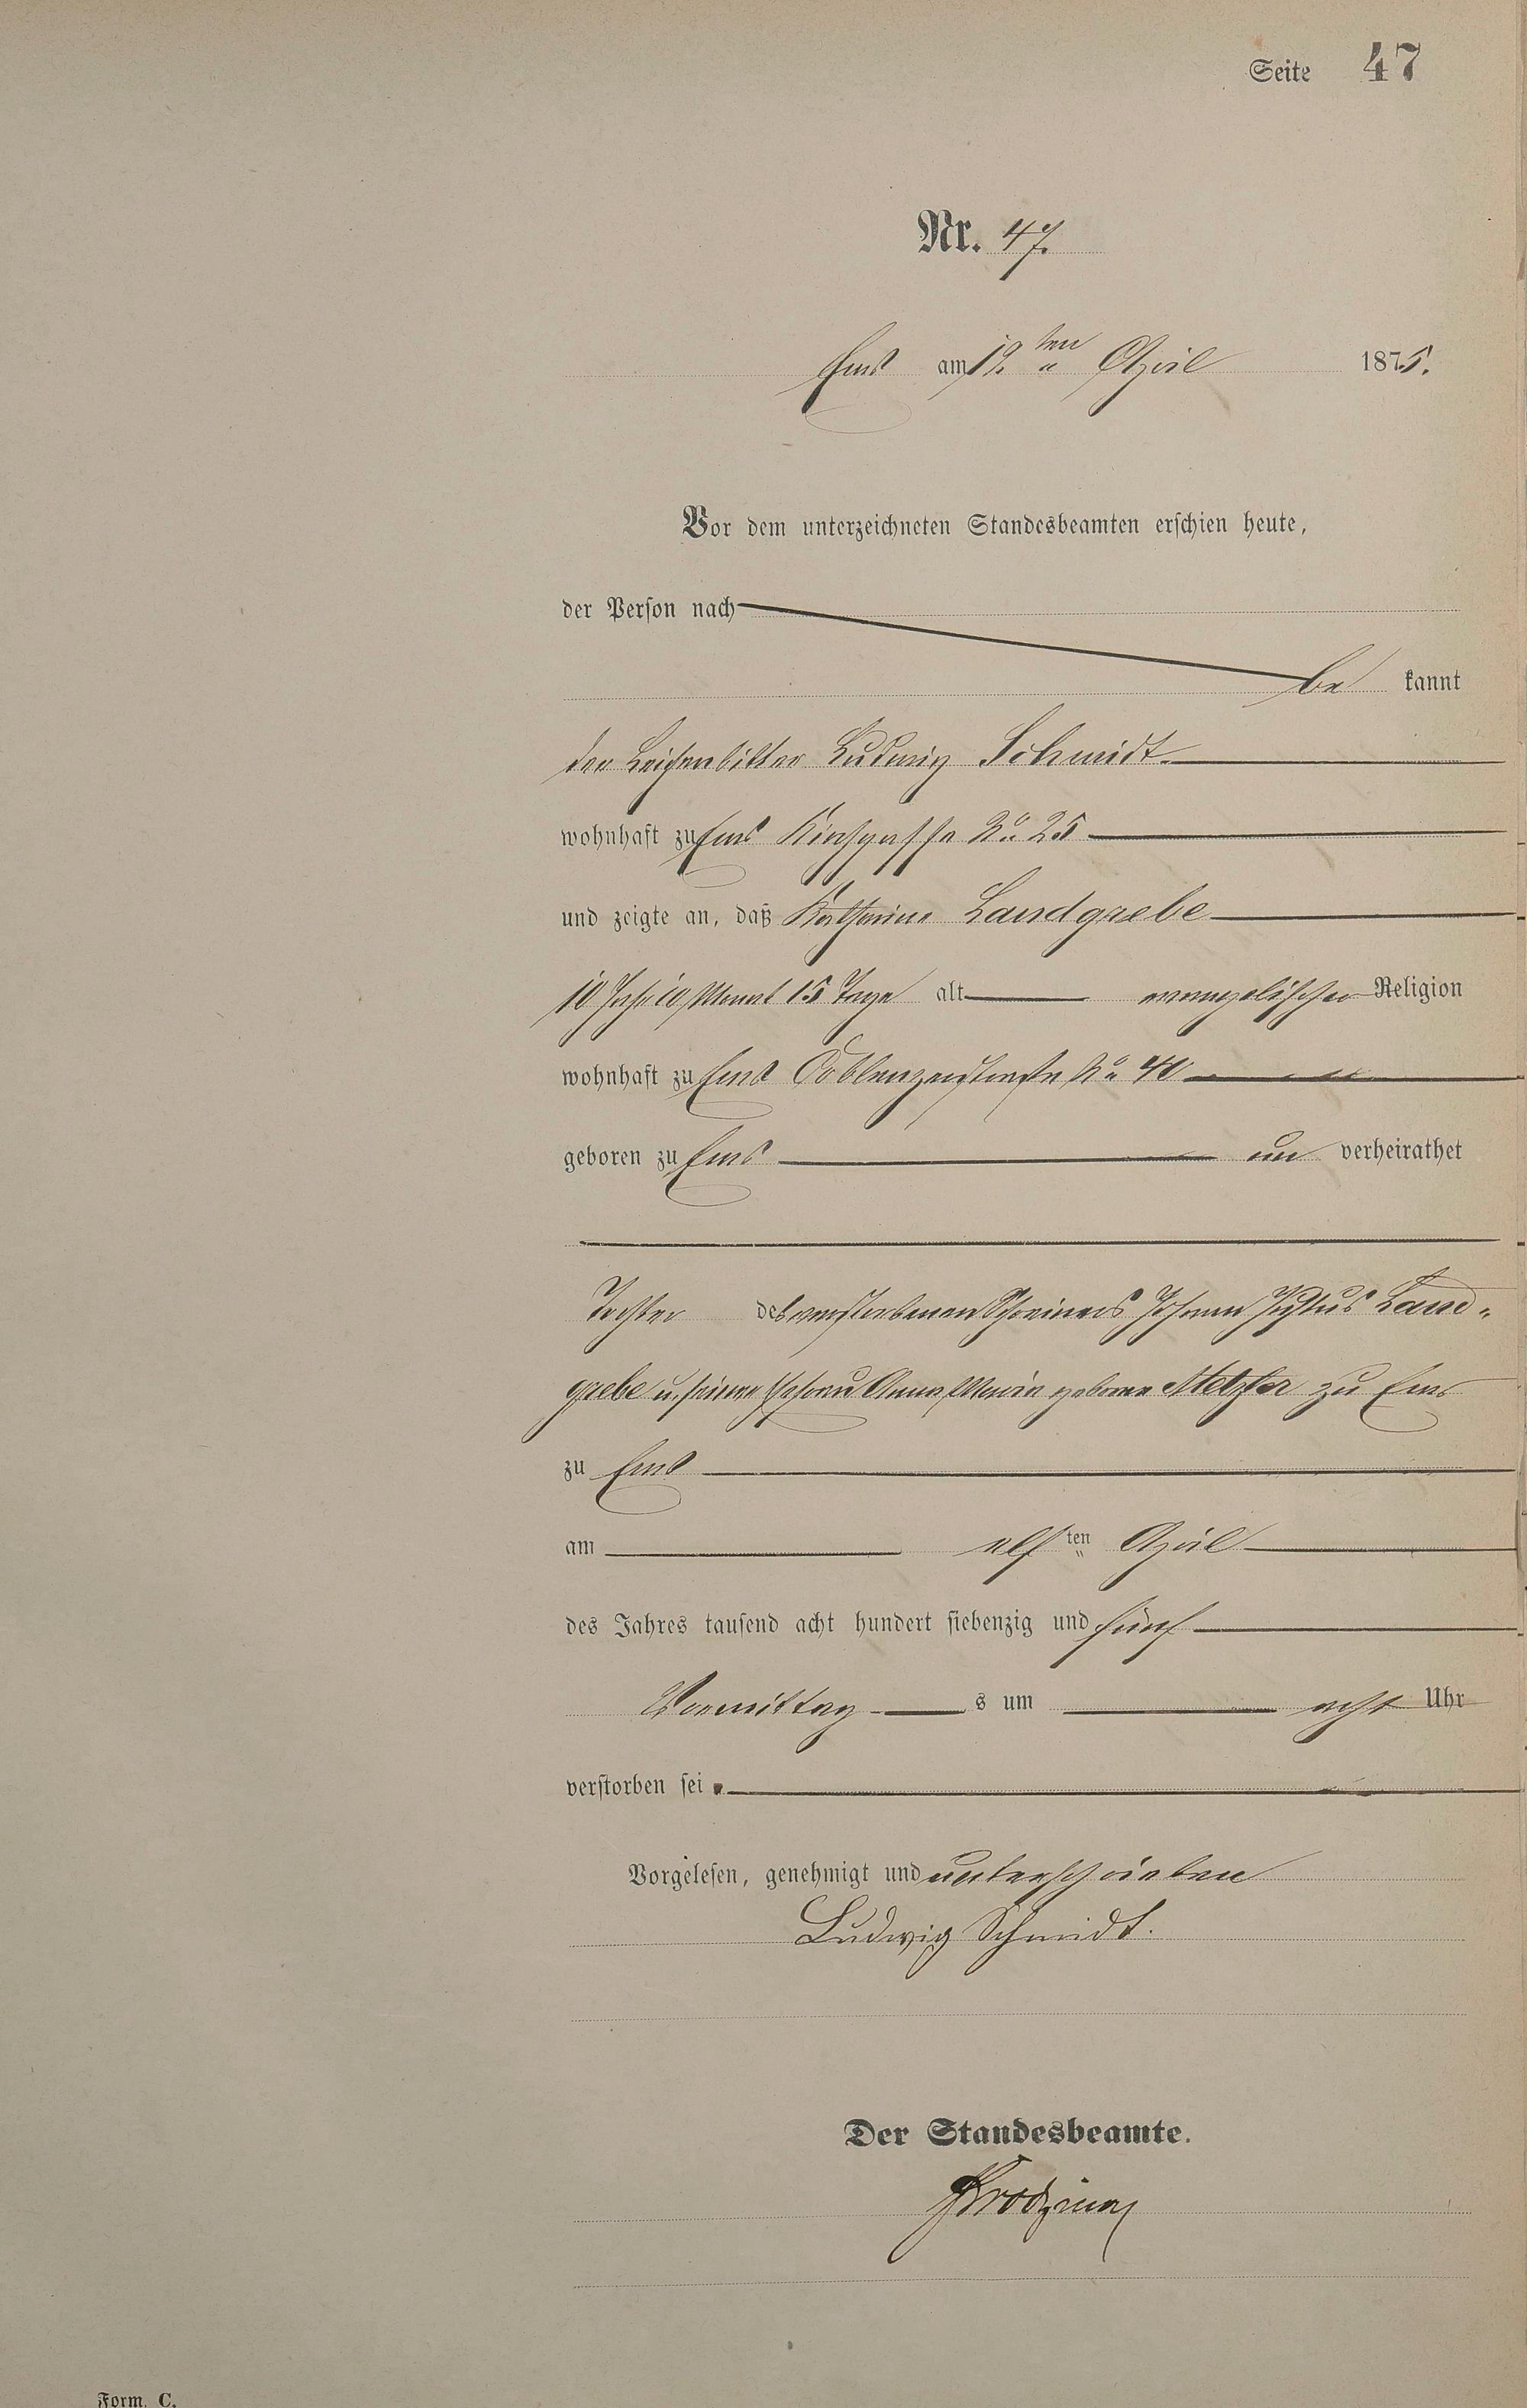 Seite 47
Nr. 47.
Ems am 12ten April 1875.
Vor dem unterzeichneten Standesbeamten erschien heute,
der Person nach
be kannt
der Leichenbitter Ludwig Schmidt
wohnhaft zu Ems Kirchgasse No 25
und zeigte an, daß Katharine Landgrebe
10 Jahr 10 Monat 15 Tage alt evangelischer Religion
wohnhaft zu Ems Coblenzerstraße No 40
geboren zu Ems un verheirathet
Tochter des verstorbenen Schreiners Johann Justus Land-
grebe u. seiner Ehefrau Anna Maria geborne Metzler zu Ems
zu Ems
am elf ten April
des Jahres tausend acht hundert siebenzig und fünf
Vormittag s um acht Uhr
verstorben sei.
Vorgelesen, genehmigt und unterschrieben
Ludwig Schmidt.
Der Standesbeamte.
Form. C.